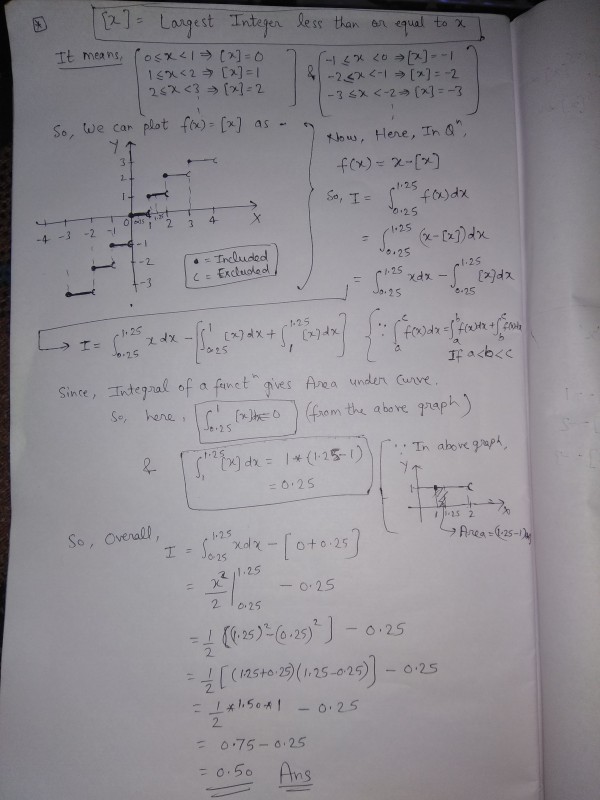 [x] = Largest Integer less than or equal to x
It means, 0≤x<1 ⇒ [x]=0
1≤x<2 ⇒ [x]=1
2≤x<3 ⇒ [x]=2
& -1≤x<0 ⇒ [x]=-1
-2≤x<-1 ⇒ [x]=-2
-3≤x<-2 ⇒ [x]=-3
So, we can plot f(x)=[x] as -
Y
3
2
1
-4 -3 -2 -1 0 0.25 1 1.25 2 3 4 X
-1
-2
-3
• = Included
C = Excluded
Now, Here, In Qⁿ,
f(x) = x-[x]
So, I = ∫_{0.25}^{1.25} f(x)dx
= ∫_{0.25}^{1.25} (x-[x])dx
= ∫_{0.25}^{1.25} xdx - ∫_{0.25}^{1.25} [x]dx
→ I = ∫_{0.25}^{1.25} x dx - [∫_{0.25}^{1} [x]dx + ∫_{1}^{1.25} [x]dx] {∵ ∫_{a}^{c} f(x)dx = ∫_{a}^{b} f(x)dx + ∫_{b}^{c} f(x)dx
If a<b<c
Since, Integral of a functⁿ gives Area under curve.
So, here, ∫_{0.25}^{1} [x]dx=0 (from the above graph)
& ∫_{1}^{1.25} [x]dx = 1*(1.25-1)
= 0.25
∵ In above graph,
Y
1
1 1.25 2 X
→ Area=(1.25-1)*1
So, Overall,
I = ∫_{0.25}^{1.25} xdx - [0+0.25]
= x²/2 |_{0.25}^{1.25} - 0.25
= 1/2 [(1.25)²-(0.25)²] - 0.25
= 1/2 [(1.25+0.25)(1.25-0.25)] - 0.25
= 1/2 *1.50*1 - 0.25
= 0.75-0.25
= 0.50 Ans